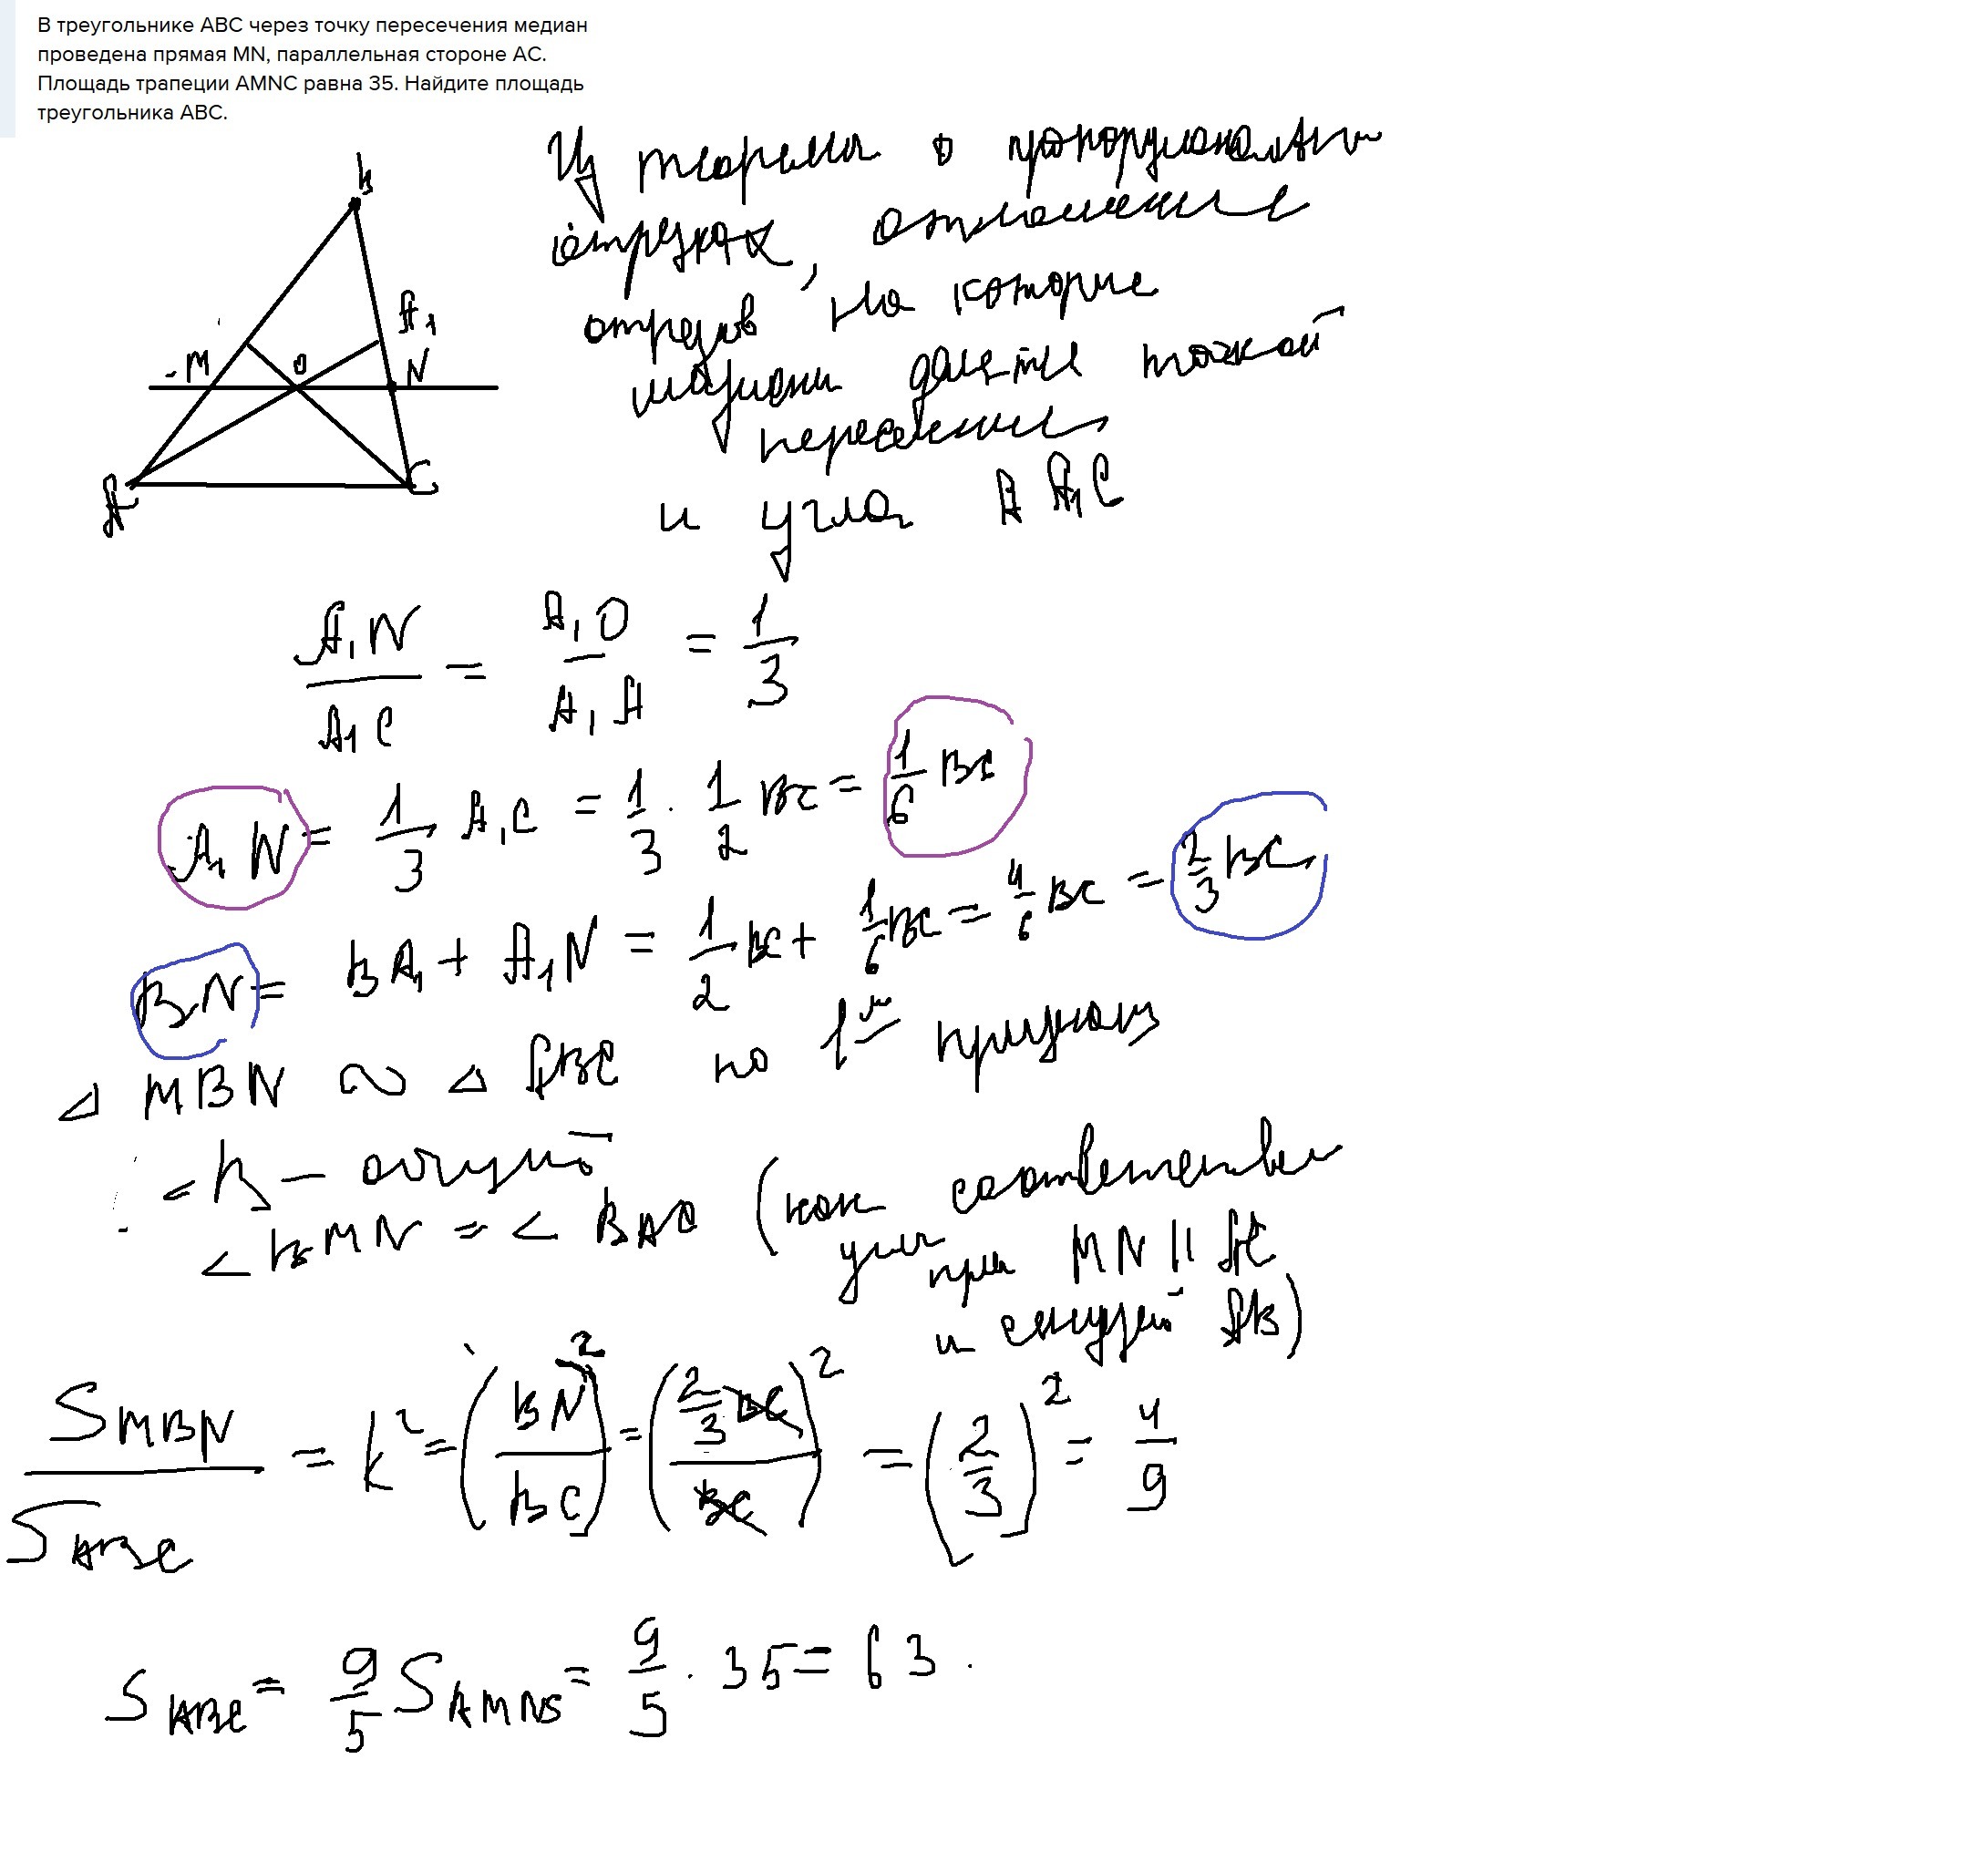 В треугольнике АВС через точку пересечения медиан
проведена прямая MN, параллельная стороне АС.
Площадь трапеции AMNC равна 35. Найдите площадь
треугольника АВС.
B
A₁
M O N
A C
Из теоремы о пропорциональных
отрезках, отношение
отрезков, на которые
медианы делятся точкой
пересечения
и угла A A₁C
A₁N / A₁C = A₁O / A₁A = 1/3
A₁N = 1/3 A₁C = 1/3 · 1/2 BC = 1/6 BC
BN = BA₁ + A₁N = 1/2 BC + 1/6 BC = 4/6 BC = 2/3 BC
△ MBN ∾ △ ABC по 1му признаку
∠ B – общий
< BMN = < BAC (как соответственные
углы при MN || AC
и секущей AB)
S MBN / S ABC = k² = (BN / BC)² = (2/3 BC / BC)² = (2/3)² = 4/9
S ABC = 9/5 S AMNS = 9/5 · 35 = 63.